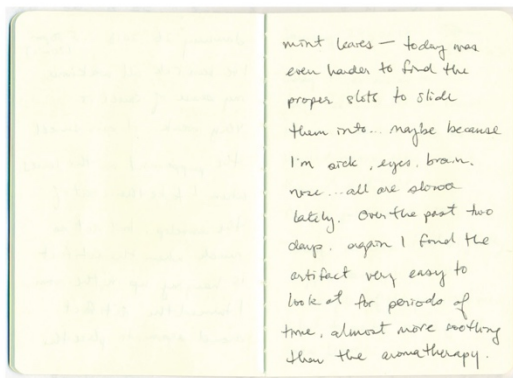 mint leaves — today was
even harder to find the
proper slots to slide
them into... maybe because
I'm sick, eyes, brain,
nose...all are slower
lately. Over the past two
days, again I found the
artifact very easy to
look at for periods of
time, almost more soothing
than the aromatherapy.